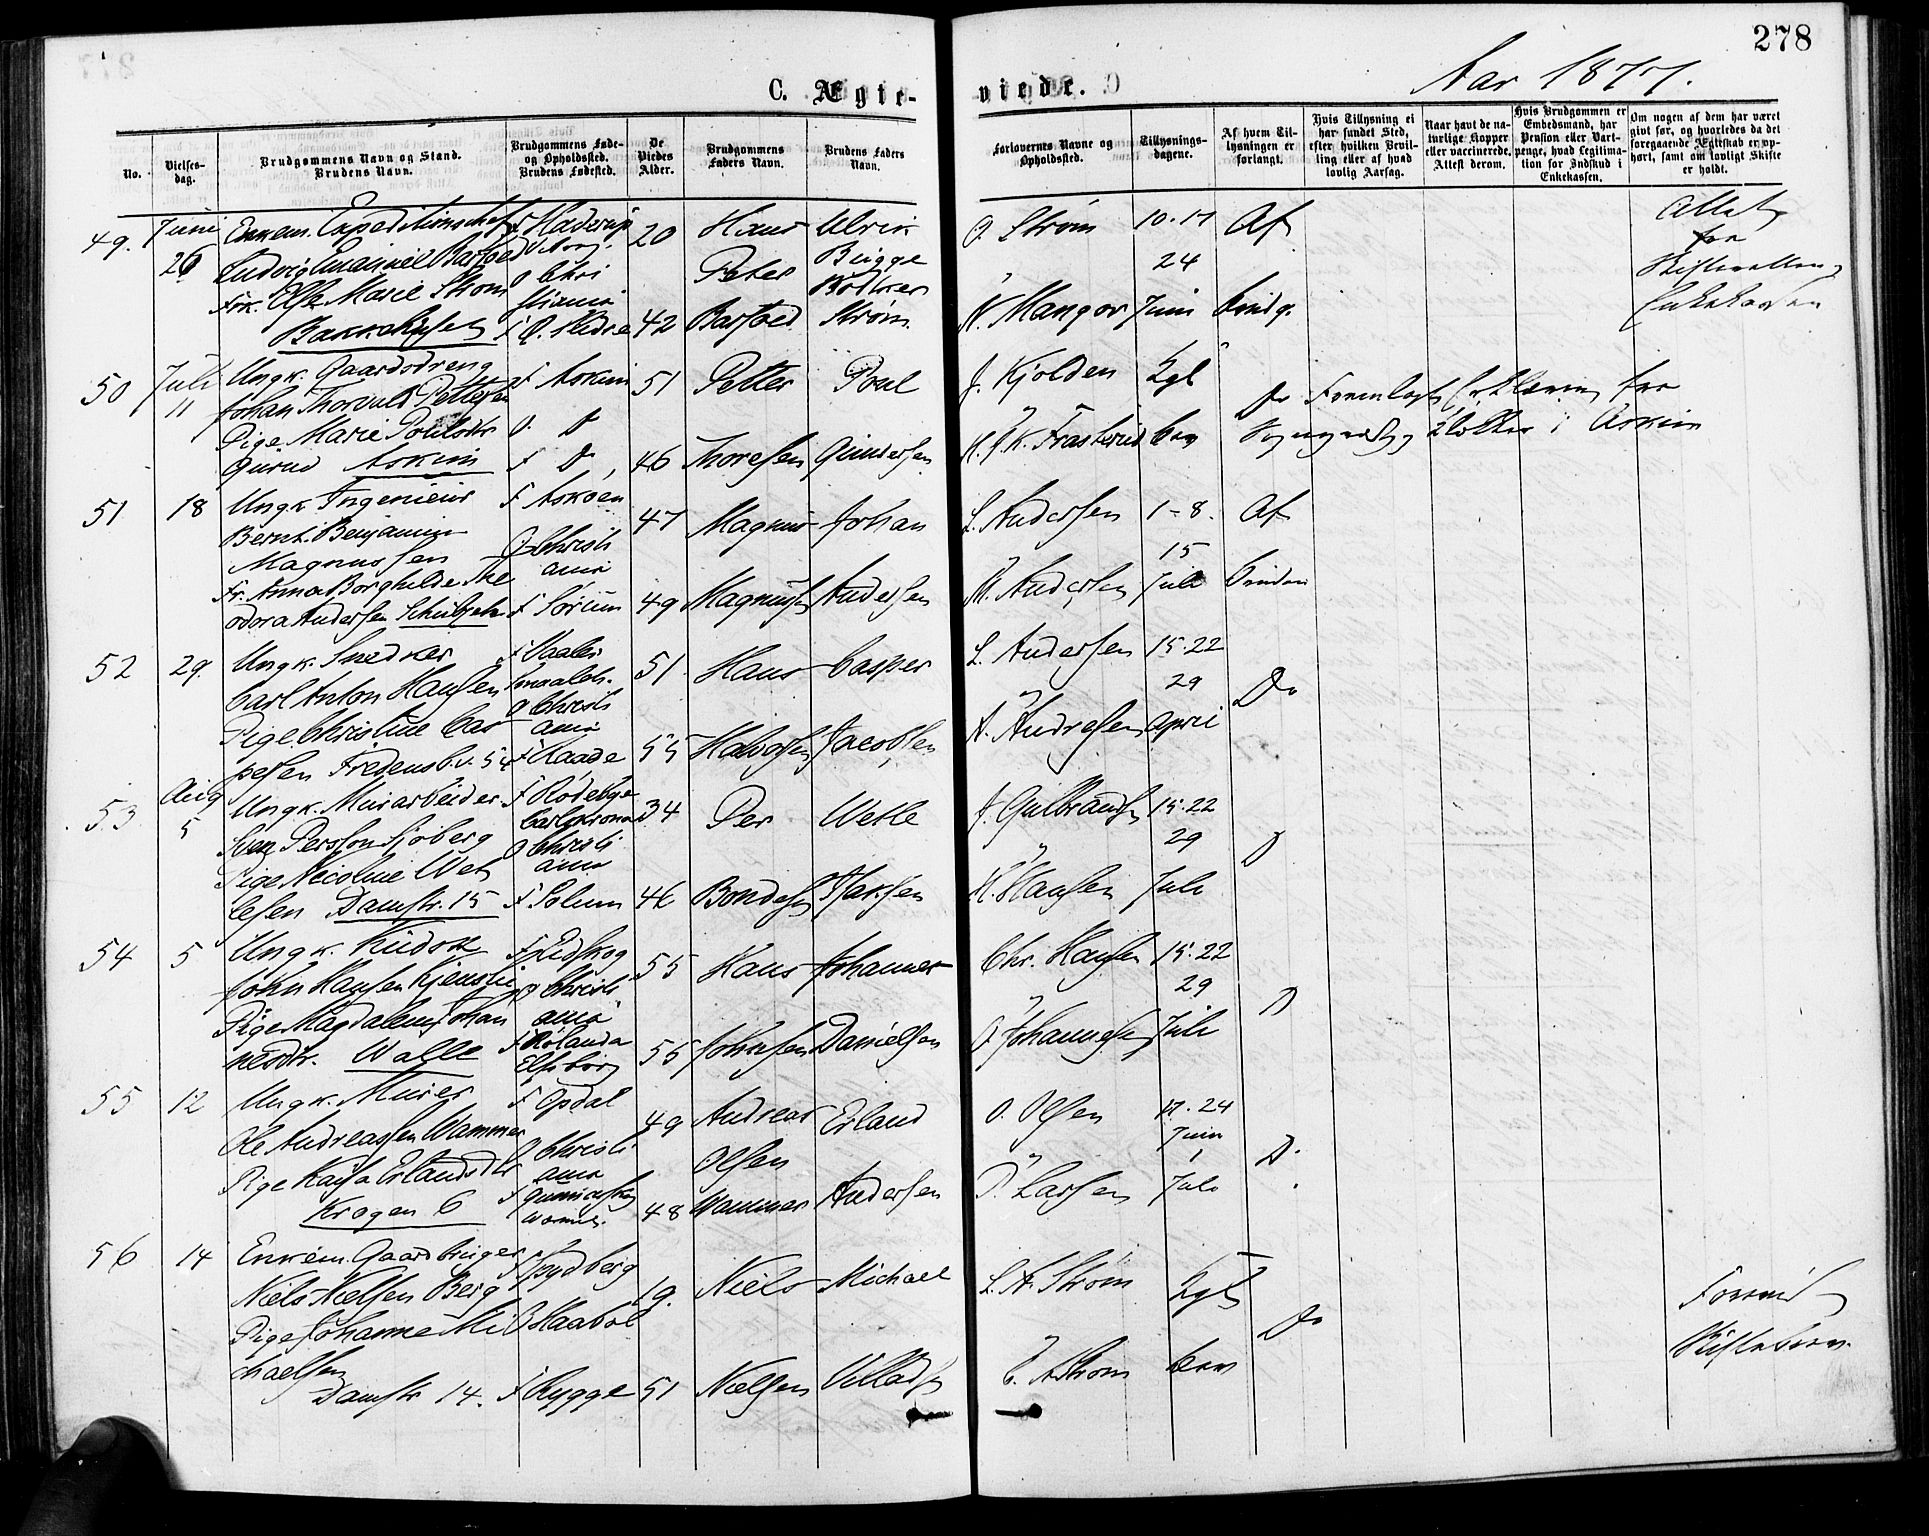 278
Aar 1877.
C. Ægte-
viede.
No.
Vielses-
dag.
Brudgommens Navn og Stand.
Brudens Navn.
Brudgommens Føde-
og Opholdssted.
Brudens Fødested.
De
Viedes
Alder.
Brudgommens
Faders Navn.
Brudens Faders
Navn.
Forlovernes Navne og
Opholdssted.
Tillysnings-
dagene.
Af hvem Til-
lysningen er
forlangt.
Hvis Tillysning ei
har fundet Sted,
efter hvilken Bevil-
ling eller af hvad
lovlig Aarsag.
Naar havt de na-
turlige Kopper
eller vaccinerede.
Attest derom.
Hvis Brudgommen er
Embedsmand, har
Pension eller Vart-
penge, hvad Legitima-
tion for Indskud i
Enkekassen.
Om nogen af dem har været
givt før, og hvorledes da det
foregaaende Ægteskab er op-
hørt, samt om lovligt Skifte
er holdt.
49. Juni
26
Enkem. Expeditionschef
Ludvig Emanuel Barfoed
Frk. Else Marie Strøm
Bakkehuset
20
42
Hans
Peter
Barfoed
Ulrik
Bügge
Bødtker
Strøm
O. Strøm
N. Mangor
10. 17
24
Juni
Af
Brudg.
Attest
fra
Skifteretten
Enkekassen
50 Juli
11
Ungk. Gaardsdreng
Johan Thorvald Pettersen
Pige Marie Poulsdtr
Gürud Askim
F Askim
O. D
F D
51
46
Petter
Thoresen
Poul
Gundersen
J. Kjolden
Kgl
bev
Do Fremlagt Erklæring fra
Sogneprest Klokker i Askim
51 18
Ungk Ingeniør
Bernt Benjamin
Magnussen
Fr. Anna Borghilde The
odora Andersen
F Askøen
O Christi
ania
F Sørum
47
49
Magnus
Magnussen
Johan
Andersen
L. Andersen
M. Andersen
1-8.
15
Juli
Af
Bruden
52 29.
Ungk. Snedker
Carl Anton Hansen
Pige Christine Cas
pesen Fredensb.v. 54
F Vaaler
Smaalene
O Christi
ania
F Raade
51
55
Hans
Halvorsen
Casper
Jacobsen
L. Andersen
A. Andresen
15. 22
29
April
Do
53 Aug
5
Ungk. Murarbeider
Sven Persson Sjøberg
Pige Nicoline Wet
lesen Damstr. 15
F Rødebye
Carlskrona
O Christi
ania
F Solum
34
46
Per
Bondesen
Wetle
Isaksen
J. Gulbrandsen
H. Hansen
15. 22
29
Juli
D
54 5
Ungk. Kudsk
John Hansen Kjensli
Pige Magdalena Johan
nesdtr. Walle
F Eidskog
O Christi
ania
F Rölanda
Elfsborg
55
55
Hans
Johnsen
Johannes
Danielsen
Chr. Hansen
O Johannesen
15. 22
29
Juli
D
55 12
Ungk. Murer
Ole Andreassen Wammer
Pige Kajsa Erlandsdtr
Krogen 6
F Opdal
O Christi
ania
F Gunnarskog
Wermel.
49
48
Andreas
Olsen
Wammer
Erland
Andersen
O. Olsen
P. Larsen
17. 24
Juni
1
Juli
D.
56 14
Enkem. Gaardbruger
Niels Nielsen Berg
Pige Johanne Mi
chaelsen
Damstr 14.
F Spydberg
O Haabøl
F Rygge
19.
51
Niels
Nielsen
Michael
Villads
L. A. Strøm
C. A Strøm
Kgl
bev
Do
Forevist
Skiftebrev.